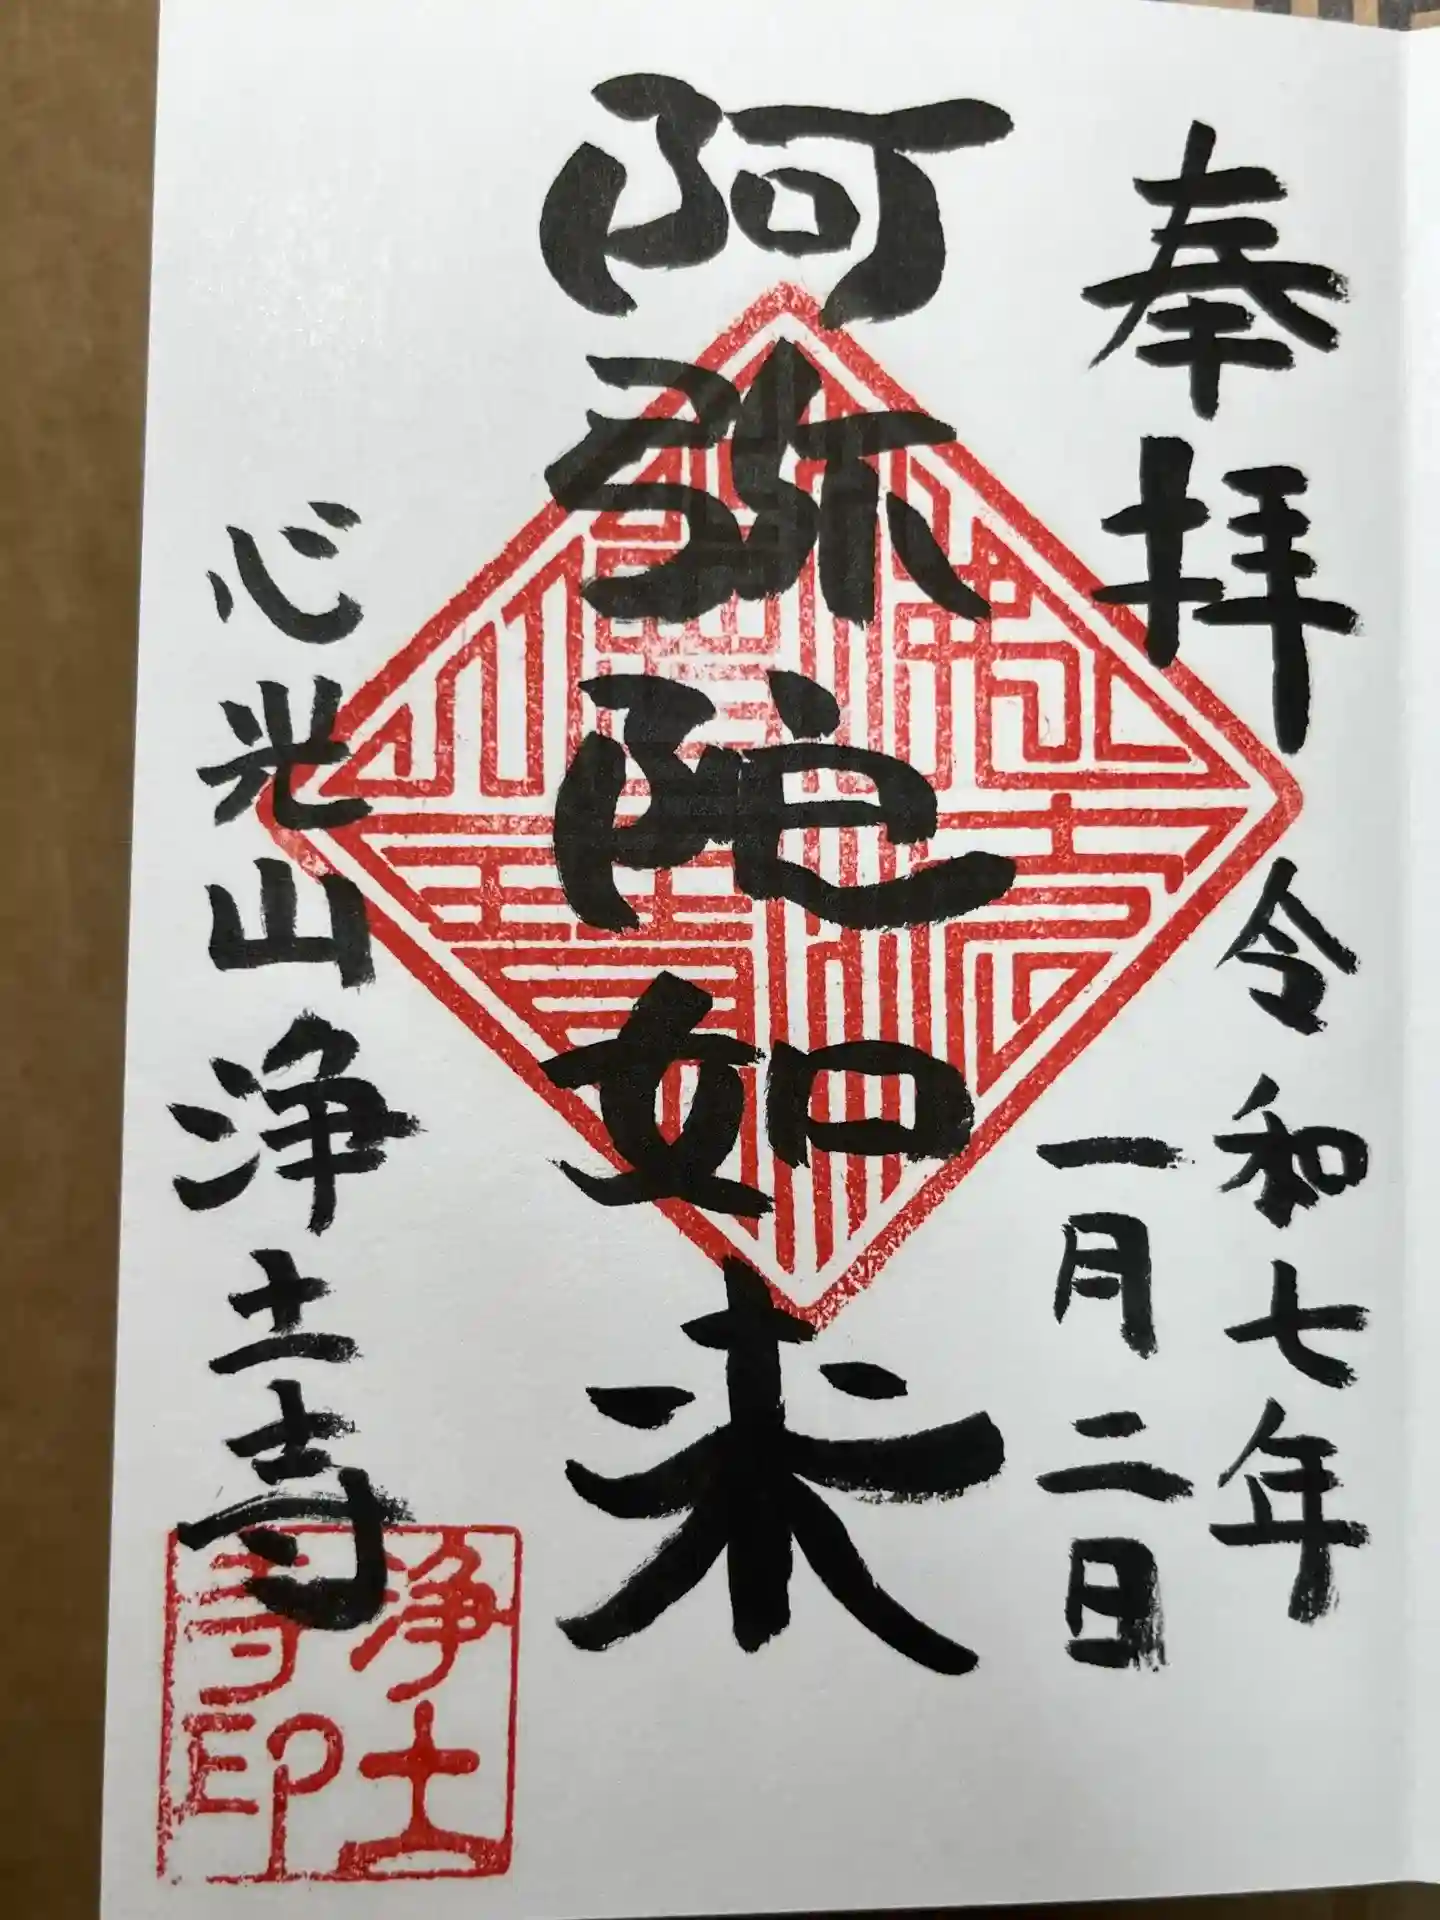 奉拝
令和七年
一月二日
阿弥陀如来
心光山浄土寺
浄土
寺印